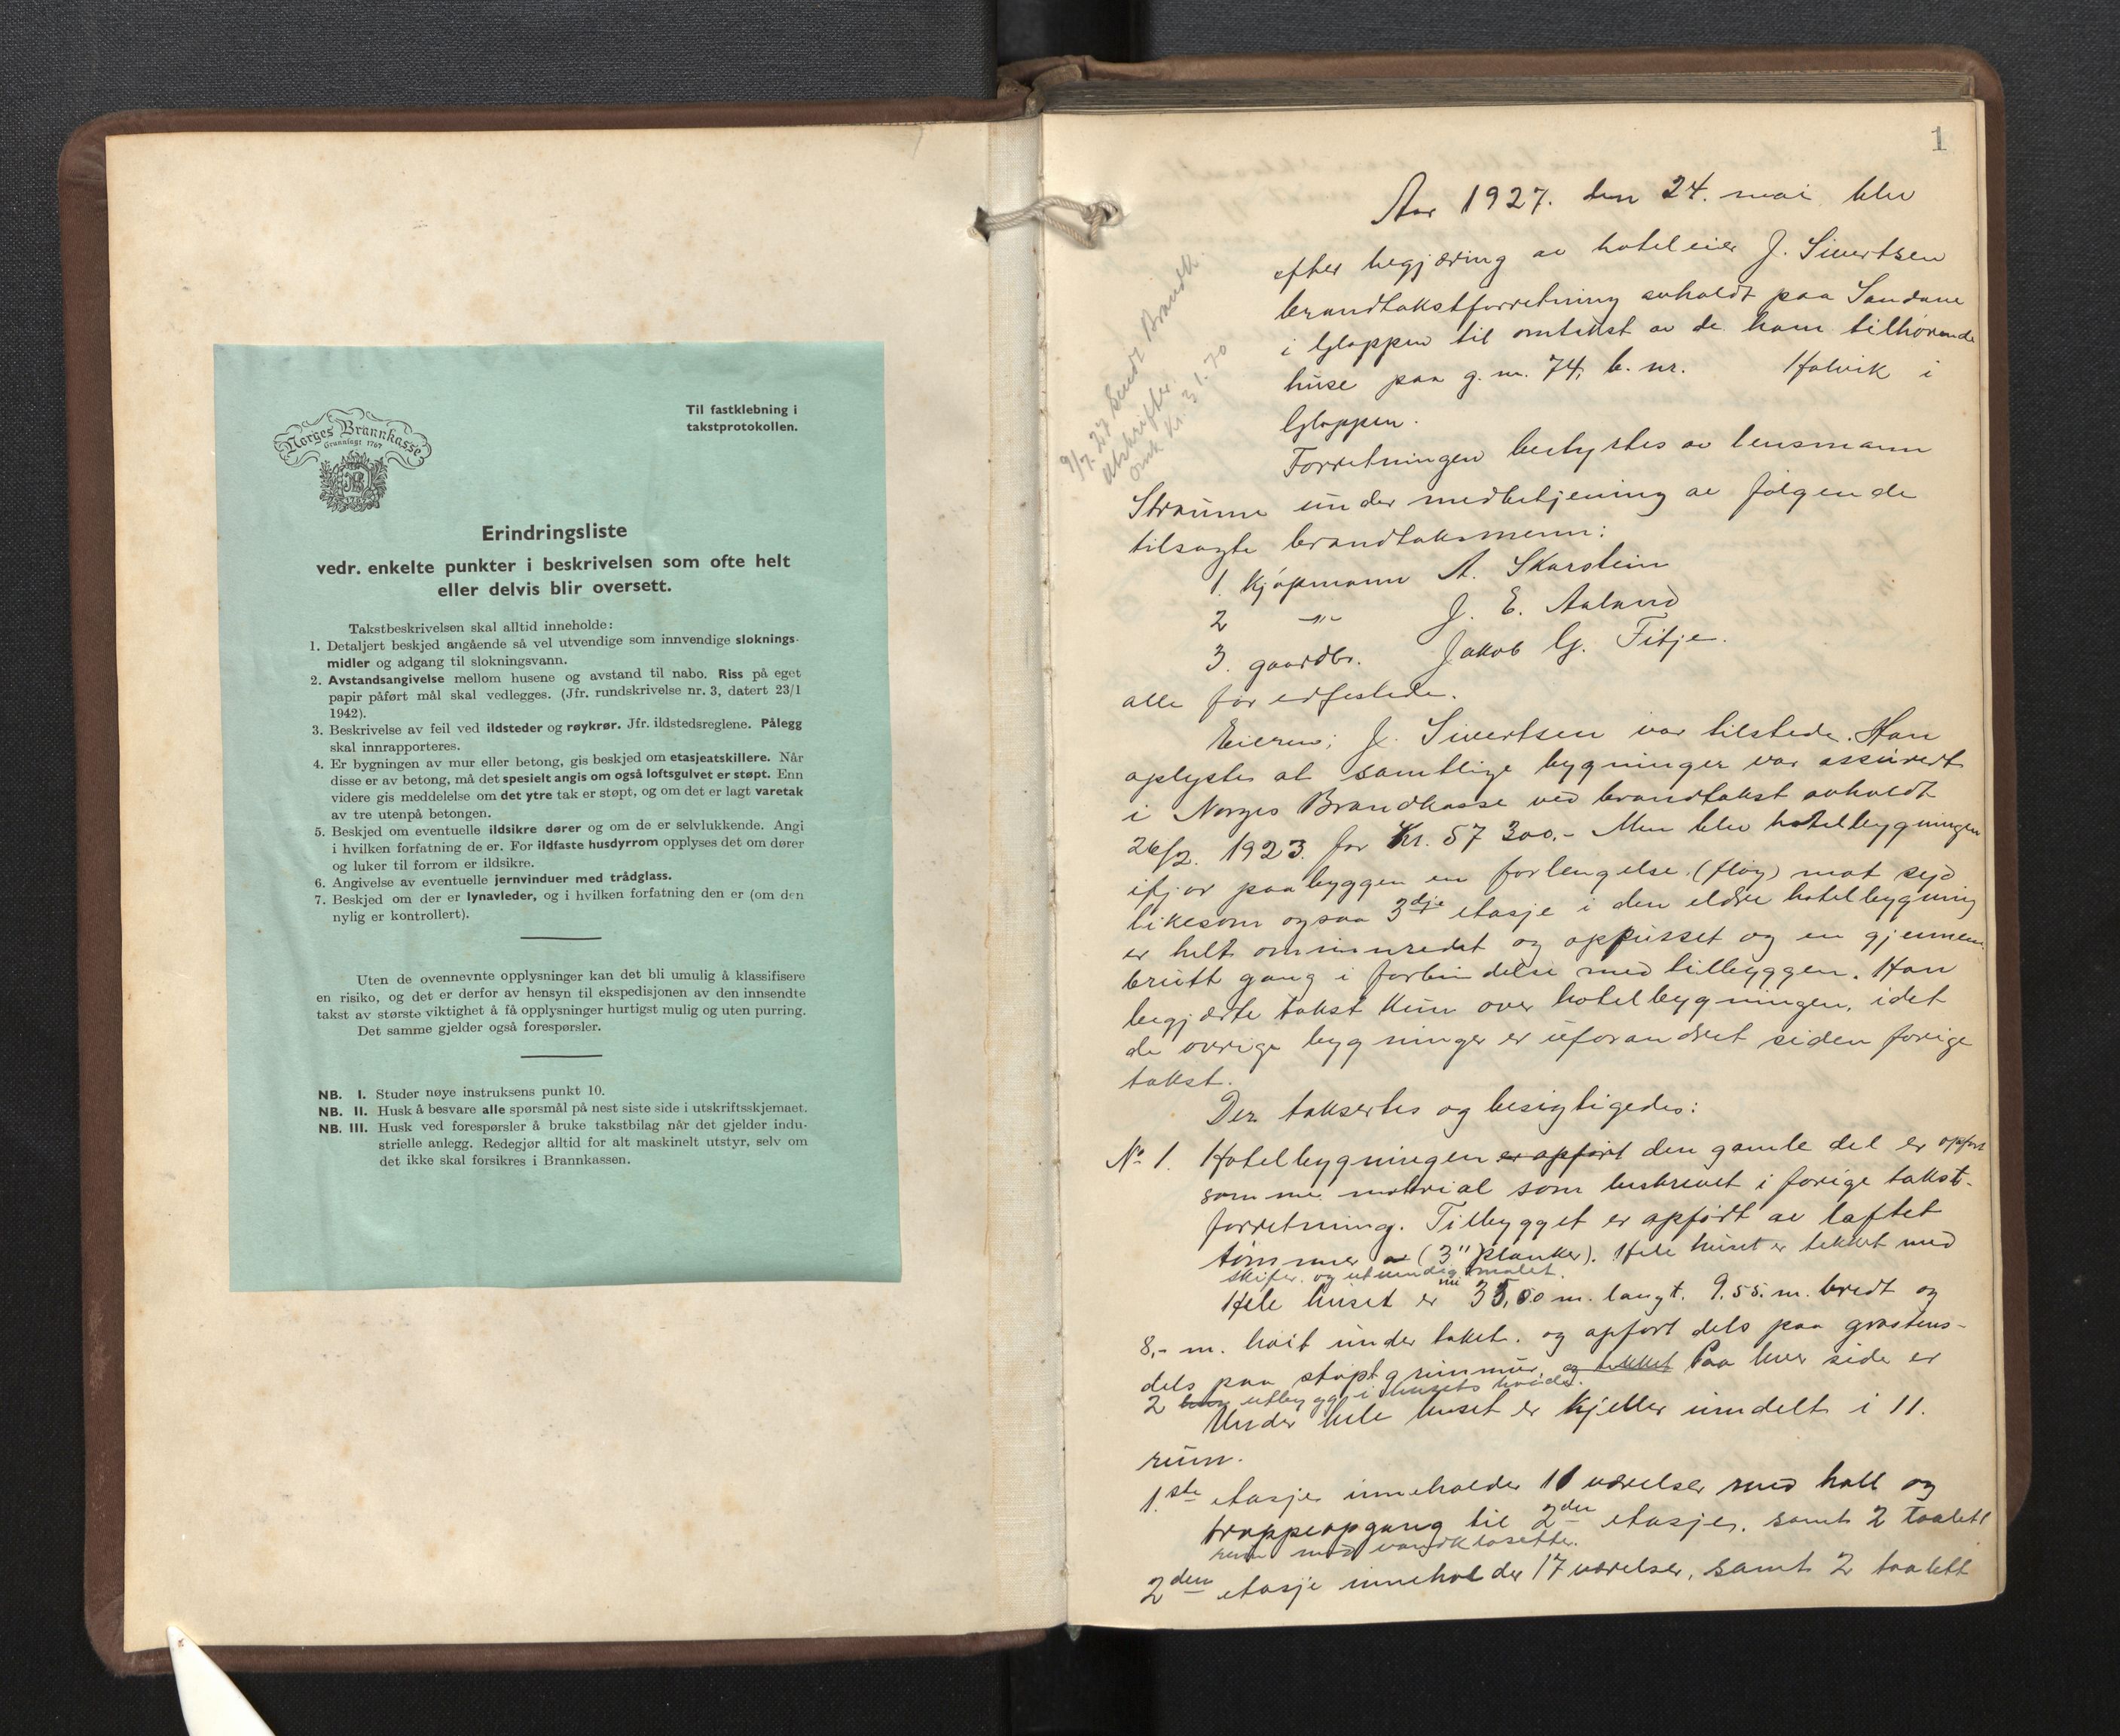 Norges Brannkasse
Grunnlagt 1767
Til fastklebning i
takstprotokollen.
Erindringsliste
vedr. enkelte punkter i beskrivelsen som ofte helt
eller delvis blir oversett.
Takstbeskrivelsen skal alltid inneholde:
1. Detaljert beskjed angående så vel utvendige som innvendige sloknings-
midler og adgang til slokningsvann.
2. Avstandsangivelse mellom husene og avstand til nabo. Riss på eget
papir påført mål skal vedlegges. (Jfr. rundskrivelse nr. 3, datert 23/1
1942).
3. Beskrivelse av feil ved ildsteder og røykrør. Jfr. ildstedsreglene. Pålegg
skal innrapporteres.
4. Er bygningen av mur eller betong, gis beskjed om etasjeatskillere. Når
disse er av betong, må det spesielt angis om også loftsgulvet er støpt. Enn
videre gis meddelelse om det ytre tak er støpt, og om det er lagt varetak
av tre utenpå betongen.
5. Beskjed om eventuelle ildsikre dører og om de er selvlukkende. Angi
i hvilken forfatning de er. For ildfaste husdyrrom opplyses det om dører
og luker til forrom er ildsikre.
6. Angivelse av eventuelle jernvinduer med trådglass.
7. Beskjed om der er lynavleder, og i hvilken forfatning den er (om den
nylig er kontrollert).
Uten de ovennevnte opplysninger kan det bli umulig å klassifisere
en risiko, og det er derfor av hensyn til ekspedisjonen av den innsendte
takst av største viktighet å få opplysninger hurtigst mulig og uten purring.
Det samme gjelder også forespørsler.
NB. I. Studer nøye instruksens punkt 10.
NB. II. Husk å besvare alle spørsmål på nest siste side i utskriftsskjemaet.
NB. III. Husk ved forespørsler å bruke takstbilag når det gjelder indu-
strielle anlegg. Redegjør alltid for alt maskinelt utstyr, selv om
det ikke skal forsikres i Brannkassen.
1
9/7. 27 sendt Brandk.
utskrifter
Omk Kr. 31.70
Aar 1927. den 24. mai blev
efter begjæring av hoteleier J. Sivertsen
brandtakstforretning avholdt paa Sandane
i Gloppen til omtakst av de ham tilhørende
huse paa g.nr. 74, b. nr. Holvik i
Gloppen.
Forretningen bestyrtes av lensmann
Straume under medbetjening av følgende
tilsagte brandtaksmenn:
1. Kjøpmann A. Skarstein
2 -"- J. E. Aaland
3. gaardbr. Jakob G. Fitje.
alle før edfestede.
Eieren; J. Sivertsen var tilstede. Han
oplyste at samtlige bygninger var assurert
i Norges Brandkasse ved brandtakst avholdt
26/2. 1923. for Kr. 57 300,- Men blev hotelbygningen
ifjor paabyggen en forlengelse (fløy) mot syd
likesom ogsaa 3dje etasje i den eldre hotelbygning
er helt ominnredet og oppusset og en gjennem-
brutt gang i forbindelse med tilbyggen. Han
begjærte takst kun over hotelbygningen, idet
de øvrige bygninger er uforandret siden forige
takst.
Der taksertes og besigtigedes:
No 1. Hotelbygningen er opført den gamle del er opført
samme material som beskrevet i forige takst-
forretning. Tilbygget er opført av laftet
tømmer (3" planker). Hele huset er tekket med
skifer. og utvendig malet.
Hele huset er nu 35,50 m. langt. 9.55. m. bredt og
8,- m. høit under taket. og opført dels paa graastens-
dels paa støpt grunnmur, og tekket Paa hver side er
2 utbygg i husets høide.
Under hele huset er kjeller inndelt i 11.
rum.
1.ste etasje inneholder 10 værelser med hall og
trappeopgang til 2den etasje. samt 2 toalett
rum med vandklosetter.
2den etasje inneholder 17 værelser, samt 2 toalett